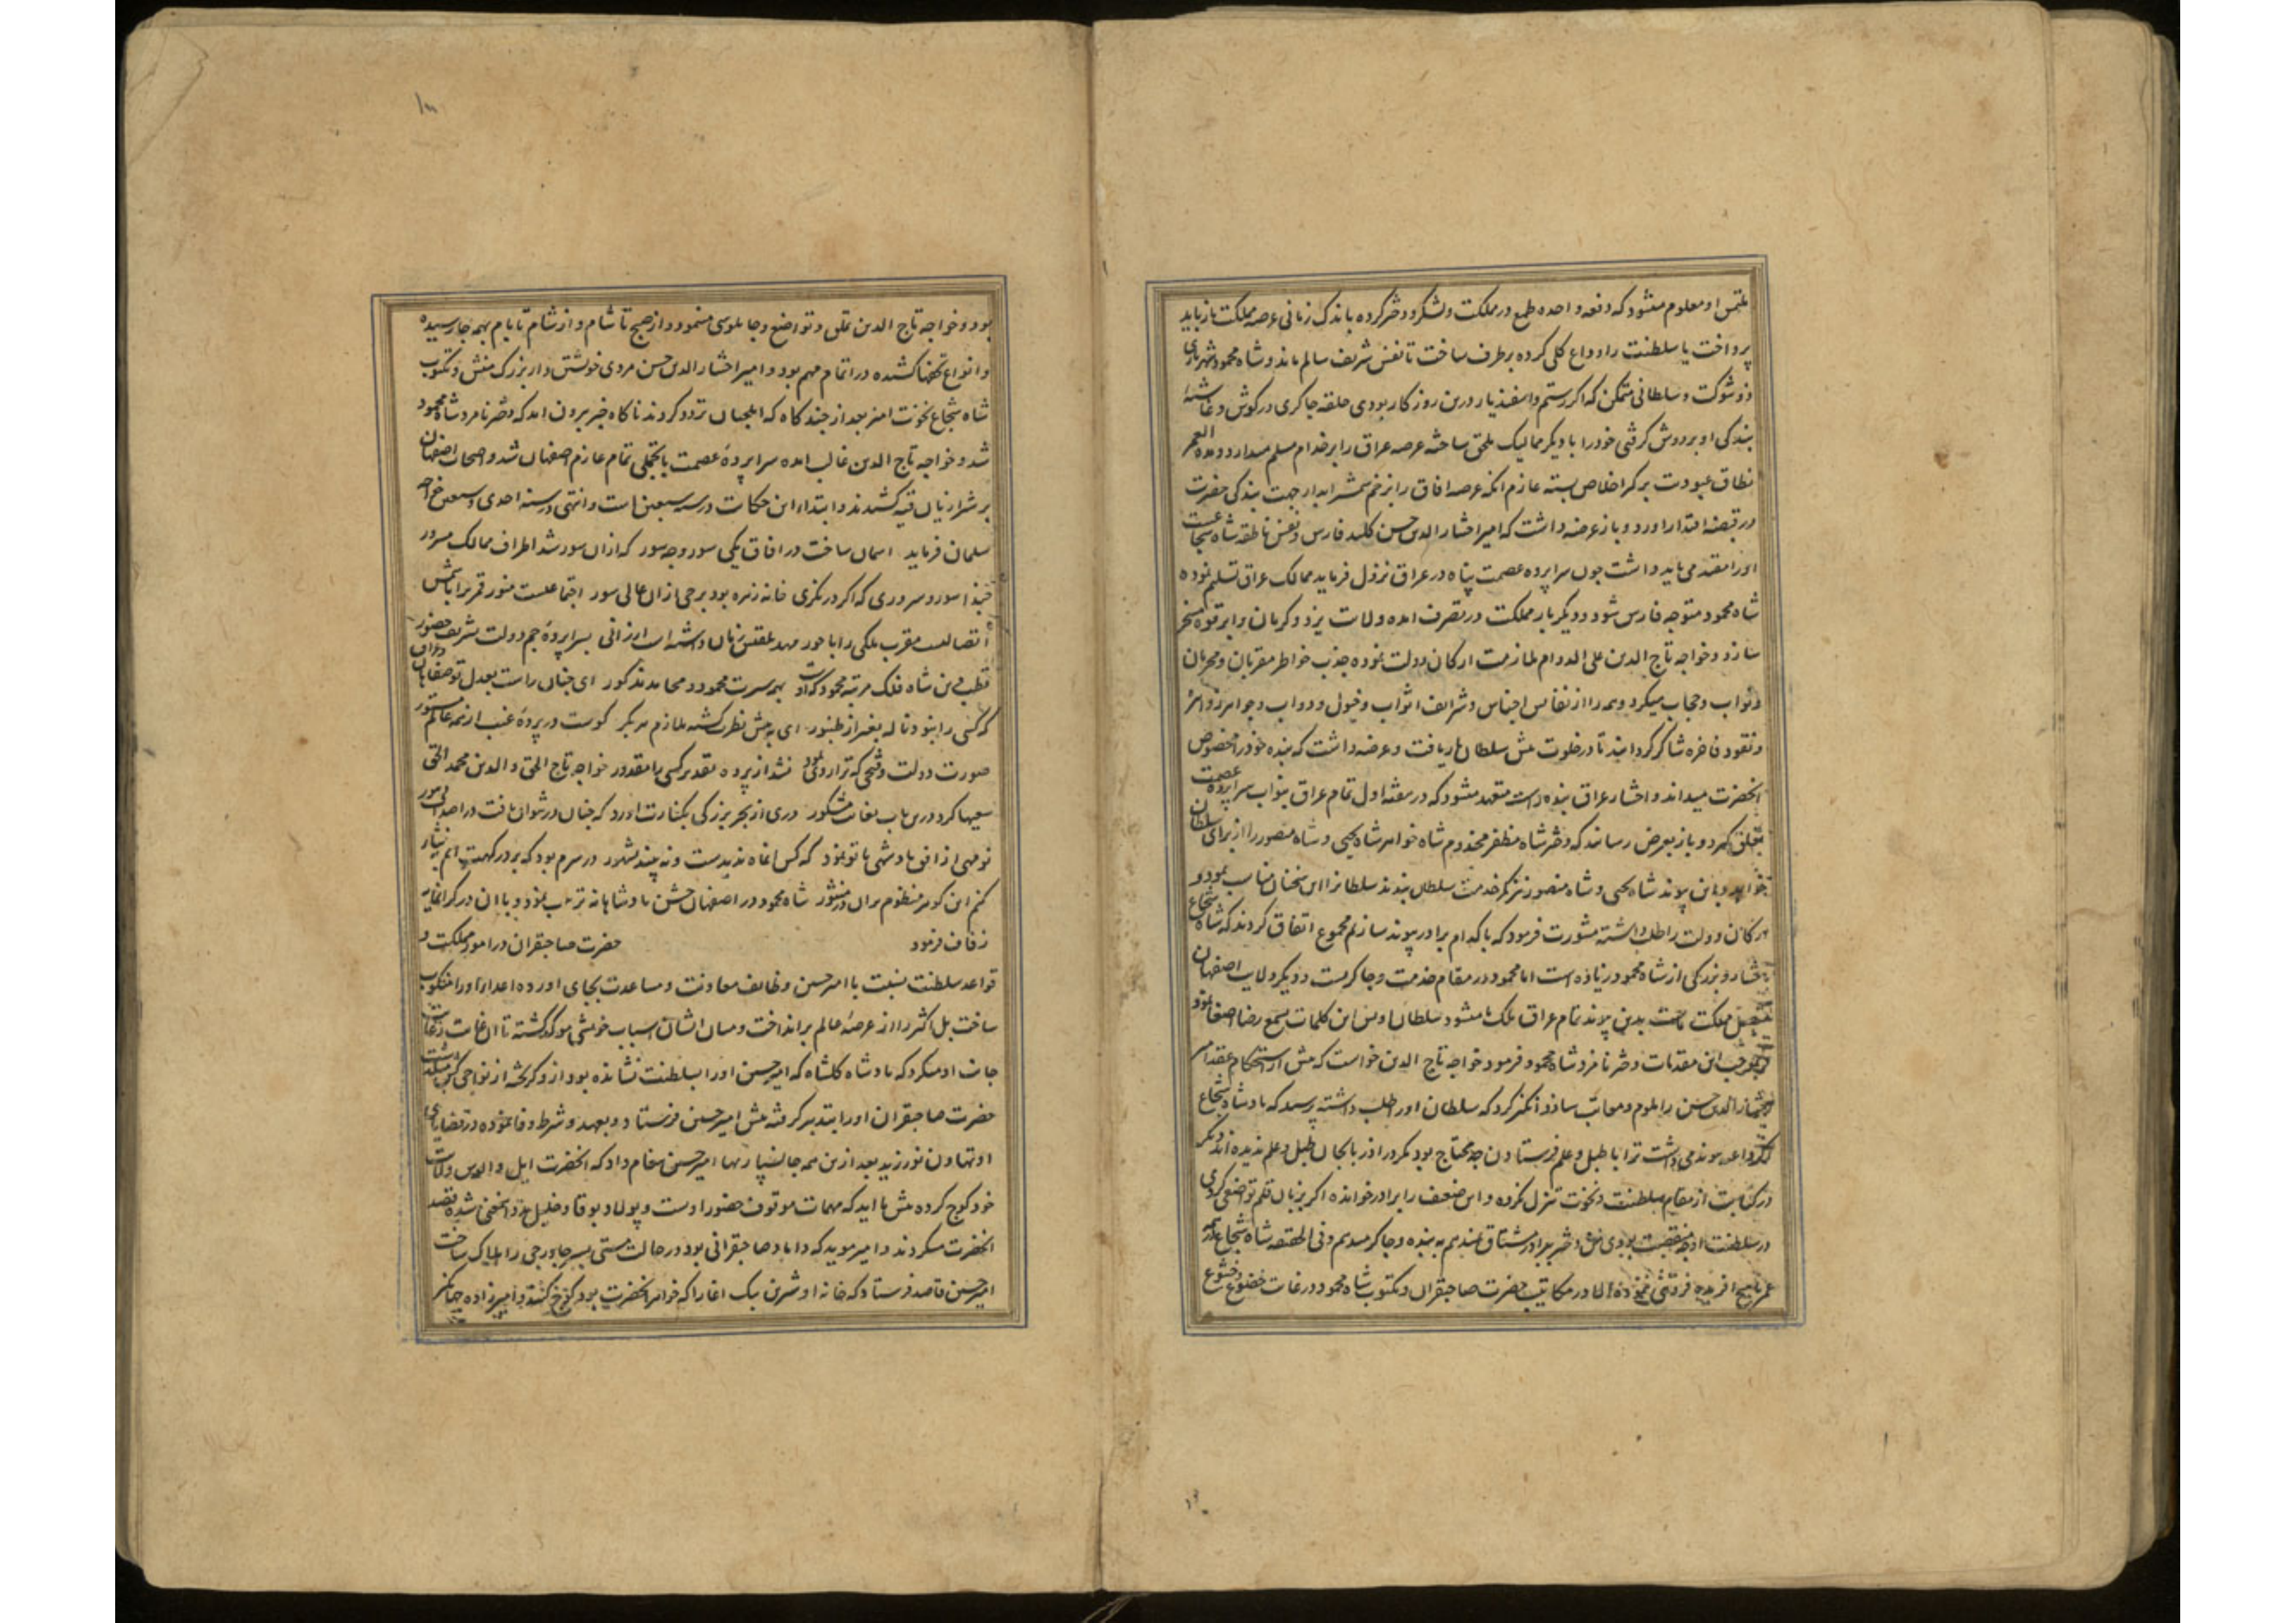 ملتمس او معلوم میشود که دفعه واحده طمع در مملکت و لشکر و دختر کرده باندک زمانی عرصه مملکت باز باید
پرداخت یا سلطنت را وداع کلی کرده برطرف ساخت تا نفس شریف سالم ماند و شاه محمود شهریاری
ذو شوکت و سلطانی متمکن که اکر رستم و اسفندیار درین روزکار بودی حلقه چاکری در کوش و غاشیهٔ
بندکی او بر دوش کرفتی خود را با دیکر ممالیک ملحق ساخته عرصه عراق را بر خدام مسلم میدارد و مدة العمر
نطاق عبودیت بر کمر اخلاص بسته عازم آنکه عرصه افاق را بزخم شمشیر ابدار جهت بندکی حضرت
در قبضه اقتدار اورد و باز عرضه داشت که امیر اختیار الدین حسن کلید فارس و نفس ناطقه شاه شجاعست
او را مقید می باید داشت چون سراپرده عصمت پناه در عراق نزول فرماید ممالک عراق تسلیم نموده
شاه محمود متوجه فارس شود و دیکر بار مملکت در تصرف امده ولایت یزد و کرمان را بر قوه مسخر
سازد و خواجه تاج الدین علی الدوام ملازمت ارکان دولت نموده جذب خواطر مقربان و محرمان
و نواب و حجاب میکرد و همه را از نفایس اجناس و شرایف اثواب و خیول و دواب و جواهر زواهر
و نقود فاخره شاکر کردانید تا در خلوت پیش سلطان بار یافت و عرضه داشت که بنده خود را مخصوص
انحضرت میداند و اختیار عراق بنده راست متعهد میشود که در سفته اول تمام عراق بنواب سراپرده عصمت
تعلق کیرد و باز بعرض رسانید که دختر شاه مظفر مخدوم شاه خواهر شاه یحیی و شاه منصور را از برای سلطان
خواهد و باین پیوند شاه یحیی و شاه منصور نیز کمر خدمت سلطان بندند سلطان را این سخنان مناسب نمود و
ارکان دولت را طلب داشته مشورت فرمود که با کدام برادر پیوند سازیم مجموع اتفاق کردند که شاه شجاع
اختیار و بزرکی از شاه محمود زیاده است اما محمود در مقام خدمت و چاکریست و دیکر ولایت اصفهان
متصل مملکت ماست بدین پیوند تمام عراق ملک ما میشود سلطان اویس این کلمات بسمع رضا اصغا نمود
بموجب این مقدمات دختر نامزد شاه محمود فرمود خواجه تاج الدین خواست که پیش از استحکام عقد امیر
اختیار الدین حسن را ملوم و معاتب سازد انکیز کرد که سلطان او را طلب داشته پرسید که پادشاه شجاع
اکر داعیه پیوند می داشت ترا با طبل و علم فرستادن چه محتاج بود مکر در اذربایجان طبل و علم ندیده اند دیکر
در کتابت از مقام سلطنت و نخوت تنزل نکرده و این ضعیف را برادر خوانده اکر بزبان قلم تواضعی کردی
در سلطنت او چه منقصت بودی من دختر ببرادر مشتاق نمیدهم به بنده و چاکر میدهم و فی القصه شاه شجاع همه
عمر با هیچ افریده فروتنی ننموده الا در مکاتیب حضرت صاحبقران و مکتوب شاه محمود در غایت خضوع و خشوع
بود و خواجه تاج الدین تملق و تواضع و چاپلوسی مینمود و از صبح تا شام و از شام تا بام بهمه جا رسیده
و انواع تحفها کشیده در اتمام مهم بود و امیر اختیار الدین حسن مردی خویشتن دار بزرک منش و مکتوب
شاه شجاع نخوت امیز بعد از چند کاه که ایلچیان تردد کردند ناکاه خبر بیرون امد که دختر نامزد شاه محمود
شد و خواجه تاج الدین غالب امده سراپردهٔ عصمت با تجملی تمام عازم اصفهان شد و اصحاب اصفهان
بر شیرازیان قیه کشیدند و ابتداء این حکایت در سنه سبعین است و انتهی در سنه احدی و سبعین خواجه
سلمان فرماید اسمان ساخت در افاق یکی سور و چه سور که ازان سور شد اطراف ممالک مسرور
حبذا سور و سروری که اکر در نکری خانه زهره بود برجی ازان عالی سور اجتماعیست منور قمر برا با شمس
اتصالیست مقرب ملکی را با حور مهد بلقیس زمان داشته اند ارزانی بسراپردهٔ جم دولت تشریف حضور
قطب دین شاه فلک مرتبه محمود که اوست بهمه سیرت محمود و محامد مذکور ای چنان راست بعدل تو صفاهان و عراق
که کسی راست بنو ناله بغیر از طنبور ای به پیش نظرت کشته ملازم هر بکر کوست در پردهٔ غیب از همه عالم مستور
صورت دولت و فتحی که ترا رو نمود نشد از پرده تقدیر کسی را مقدور خواجه تاج الحق و الدین محمد الحق
سعیها کرد درین باب بغایت مشکور دری از بحر بزرکی بکنارت اورد که چنان در نتوان یافت در اصداف بحور
نو مهی از افق پادشهی با تو نمود که کس ان ماه ندیدست و نه بیند بشهور در سرم بود که بر درکهت ایم بنثار
کنم این کوهر منظوم بران در منثور شاه محمود در اصفهان جشن پادشاهانه ترتیب نمود و با ان در کرانمایه
زفاف فرمود حضرت صاحبقران در امور مملکت و
قواعد سلطنت نسبت با امیر حسین وظایف معاونت و مساعدت بجای اورده اعداء او را منکوب
ساخت بل اکثر را از عرصهٔ عالم برانداخت و میان ایشان اسباب خویشی موکد کشته تا ان غایت رعایت
جانب او میکرد که پادشاه کابلشاه که امیر حسین او را بسلطنت نشانده بود ازو کریخته از نواحی کش میکذشت
حضرت صاحبقران او را بتدبیر کرفته پیش امیر حسین فرستاد و بعهد و شرط وفا نموده در قضایای
او تهاون نورزید بعد ازین همه جانسپاریها امیر حسین پیغام داد که انحضرت ایل و الوس ولایت
خود کوچ کرده پیش ما اید که مهمات موقوف حضور اوست و پولاد بوقا و خلیل متفق شده قصد
انحضرت میکردند و امیر موید که داماد صاحبقرانی بود در حالت مستی پسر چاورچی را هلاک ساخت
امیر حسین قاصد فرستاد که خانه او شیرین بیک اغا را که خواهر انحضرت بود کوچ کنند و امیرزاده جهانکیر